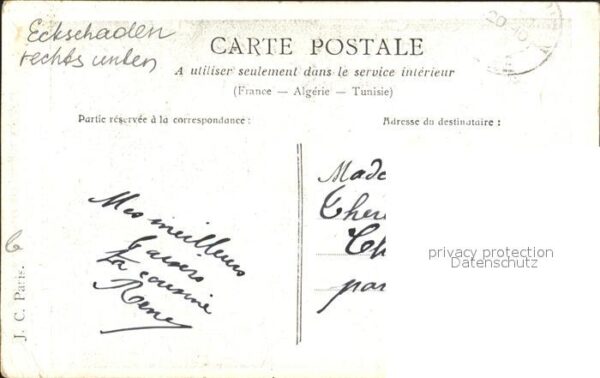 Eckschaden
rechts unten
CARTE POSTALE
A utiliser seulement dans le service intérieur
(France — Algérie — Tunisie)
Partie réservée à la correspondance :
Adresse du destinataire :
Mes meilleurs
baisers
Ta cousine
Rene
Made
Ther
Ch
par
privacy protection
Datenschutz
J. C. Paris.